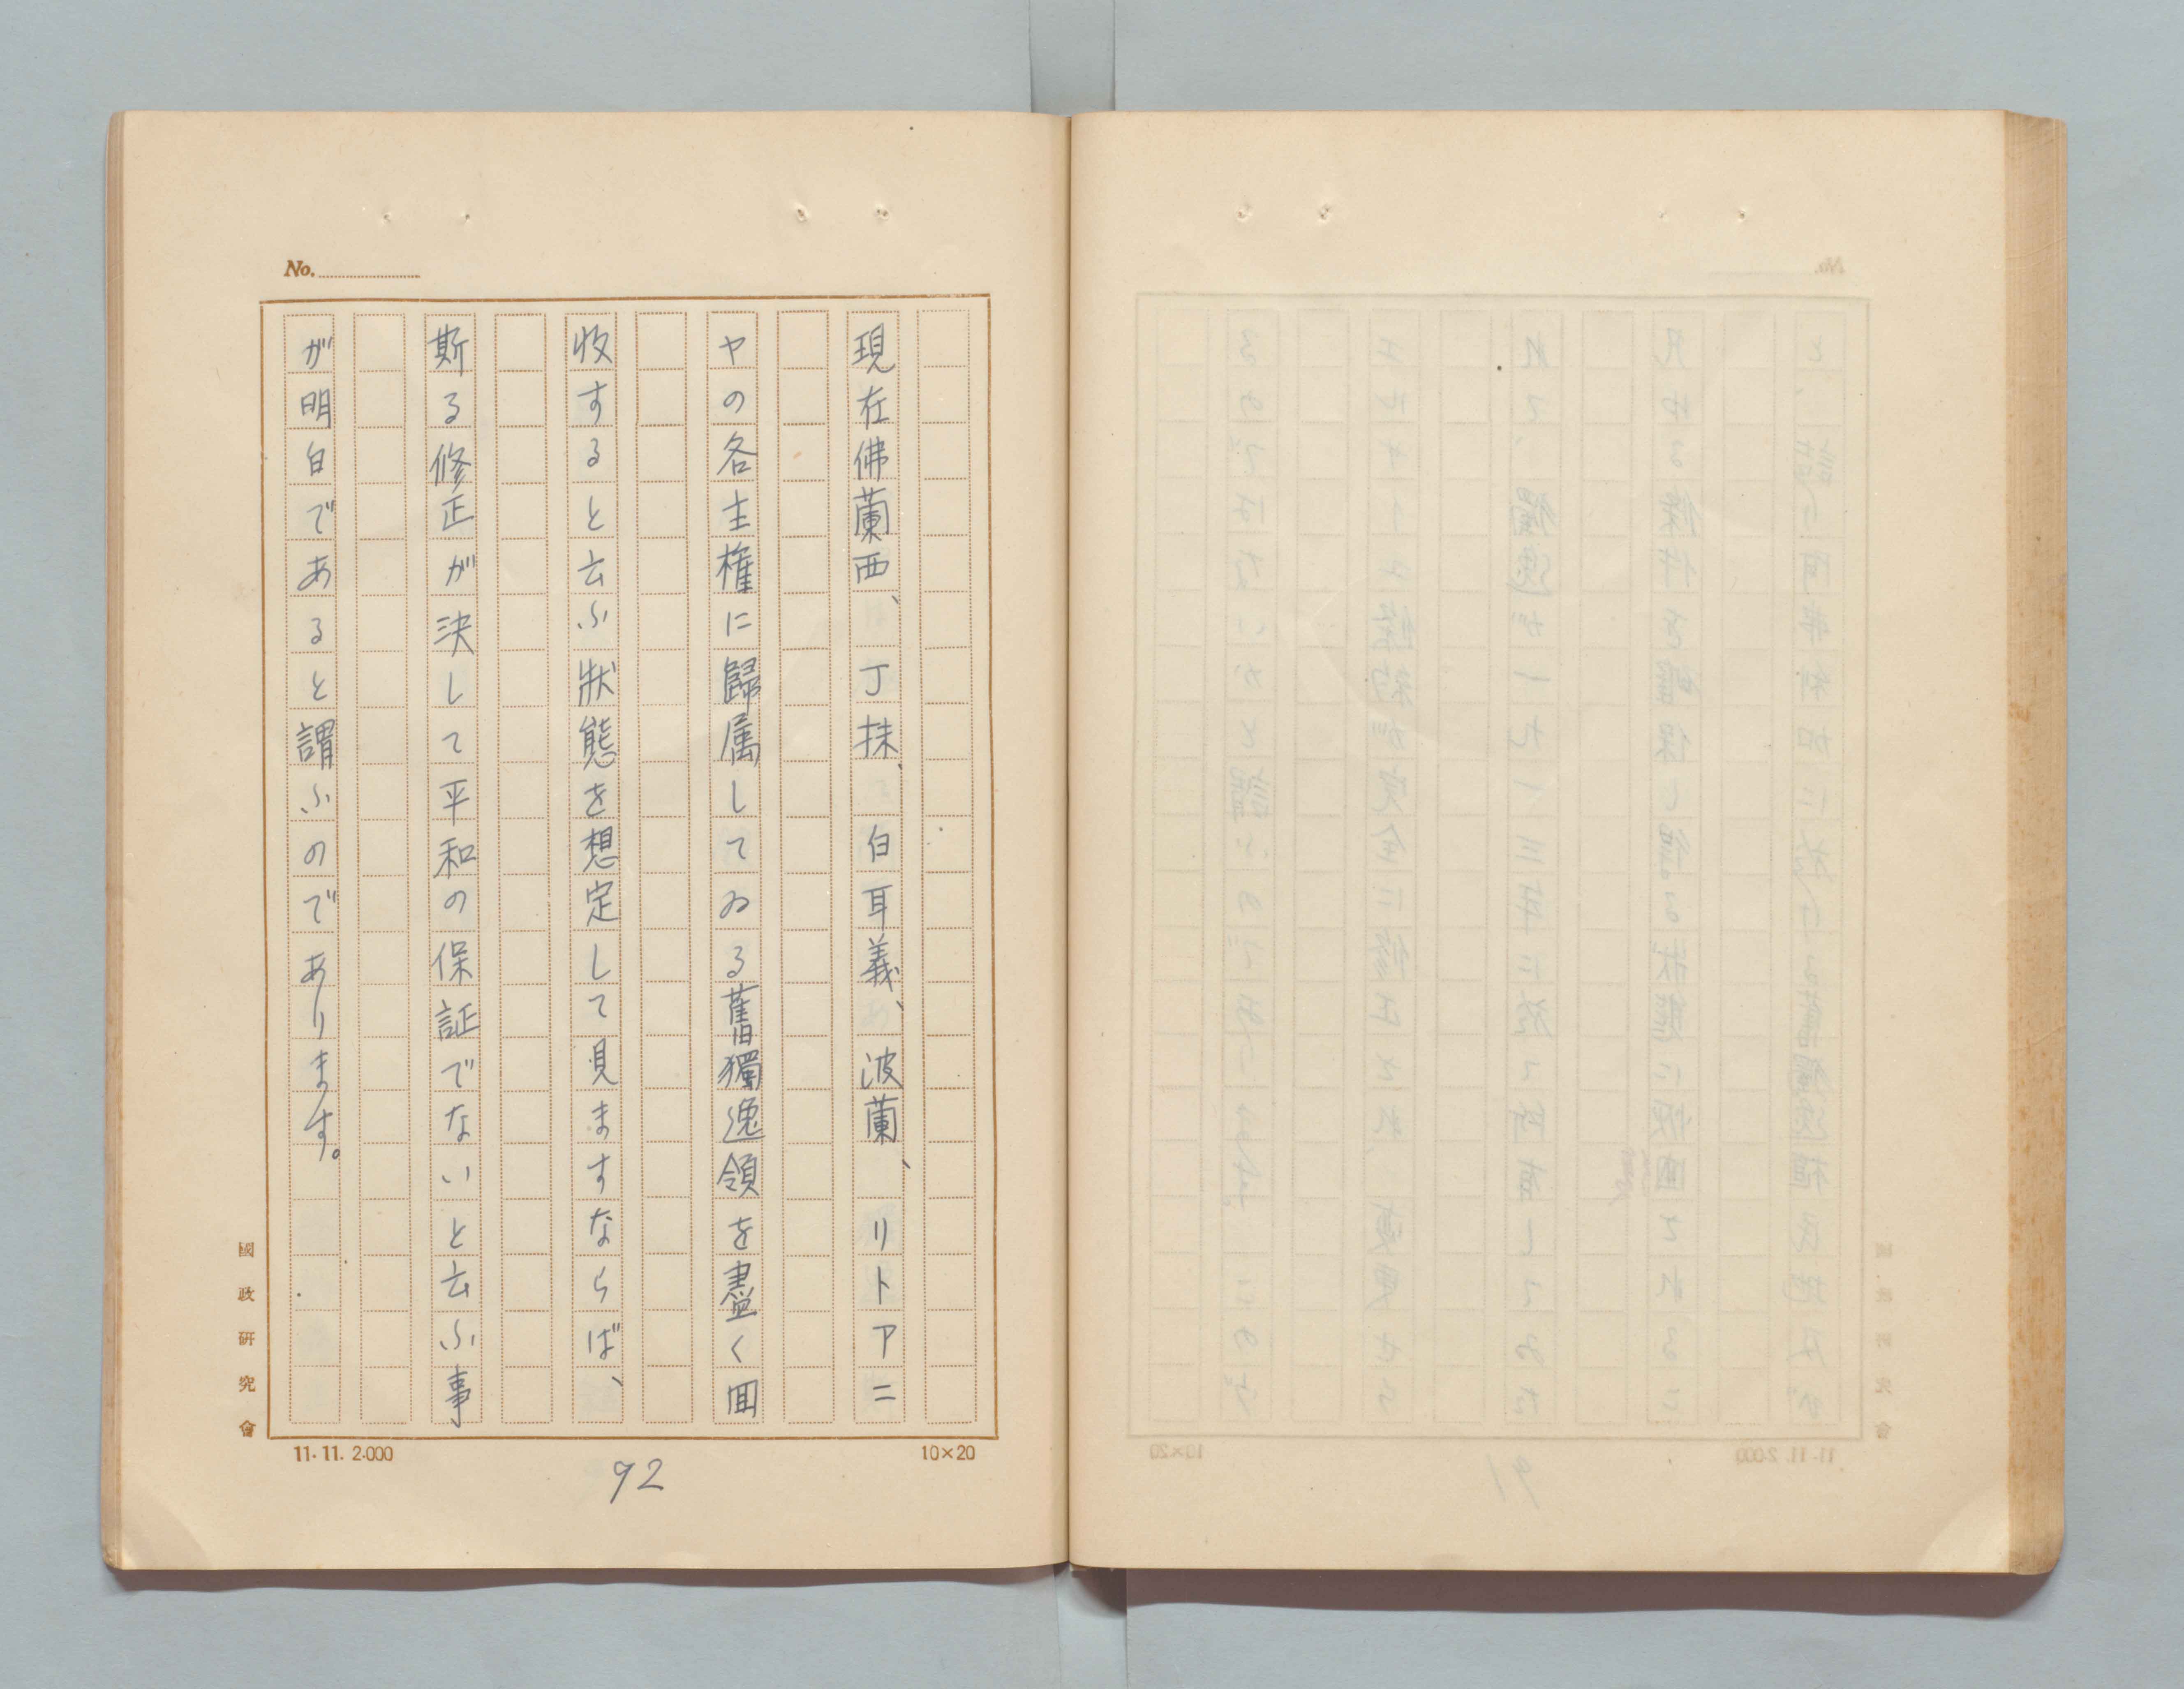 No.
現在佛蘭西、丁抹、白耳義、波蘭、リトアニ
ヤの各主権に歸属してゐる舊獨逸領を盡く囬
收すると云ふ狀態を想定して見ますならば、
斯る修正が決して平和の保証でないと云ふ事
が明白であると謂ふのであります。
國政研究會
11. 11. 2.000
10×20
92